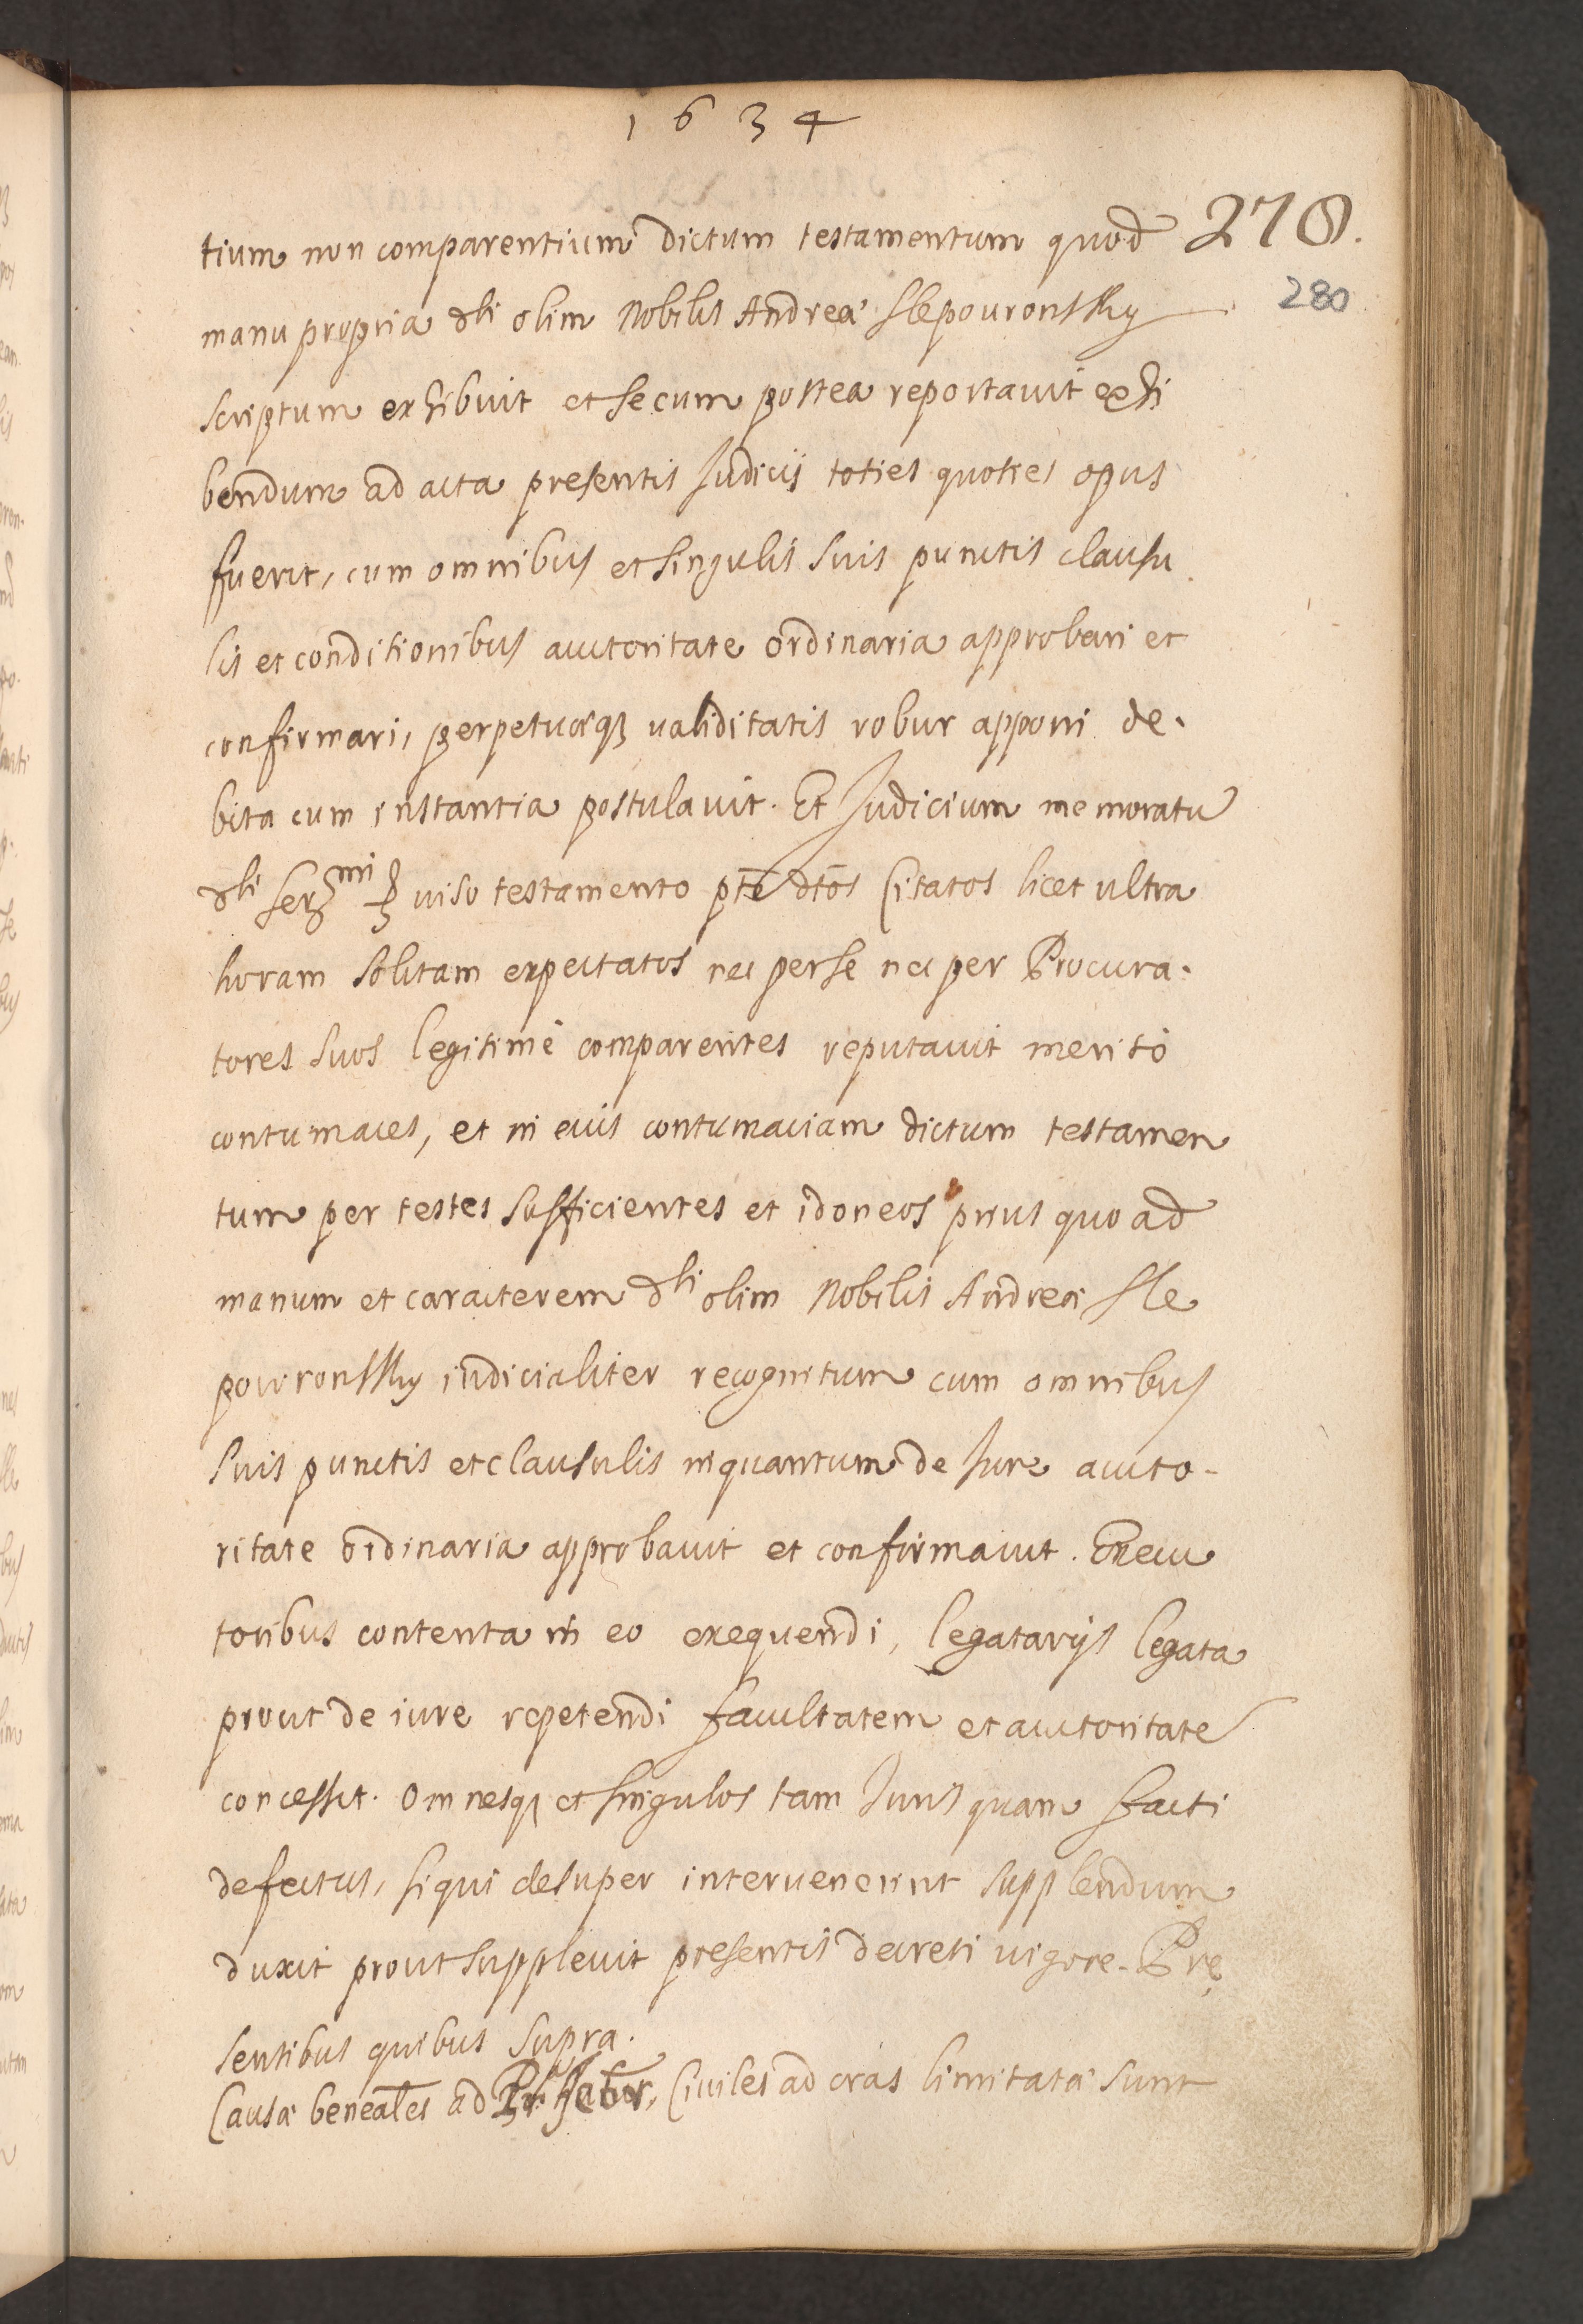 1634
tium non comparentium dictum testamentum quod 278.
280
manu propria dti olim Nobilis Andreæ Slepouronsky
scriptum exhibuit et secum postea reportauit exhi
bendum ad acta presentis Judicij toties quoties opus
fuerit, cum omnibus et singulis suis punctis clausu
lis et conditionibus auctoritate ordinaria approbari et
confirmari, perpetuæq3 validitatis robur apponi de.
bita cum instantia postulauit. Et Judicium memoratū
dti viso testamento pte dtos Citatos licet ultra
horam solitam expectatos nec per se nec per Procura.
tores suos legitimè comparentes reputauit meritò
contumaces, et in eius contumaciam dictum testamen
tum per testes sufficientes et idoneos prius quo ad
manum et caracterem dti olim Nobilis Andreæ Sle
pouronsky iudicialiter recognitum cum omnibus
suis punctis et clausulis inquantum de Jure aucto-
ritate ordinaria approbauit et confirmauit. Execu
toribus contenta in eo exequendi, legatarijs legata
prout de iure repetendi facultatem et auctoritatē
concessit. Omnesq3 et singulos tam Juris quam facti
defectus, siqui desuper interuenerint supplendum
duxit prout suppleuit presentis decreti uigore. Præ
sentibus quibus supra.
Causæ beneales ad Ciuiles ad cras limitatæ sunt